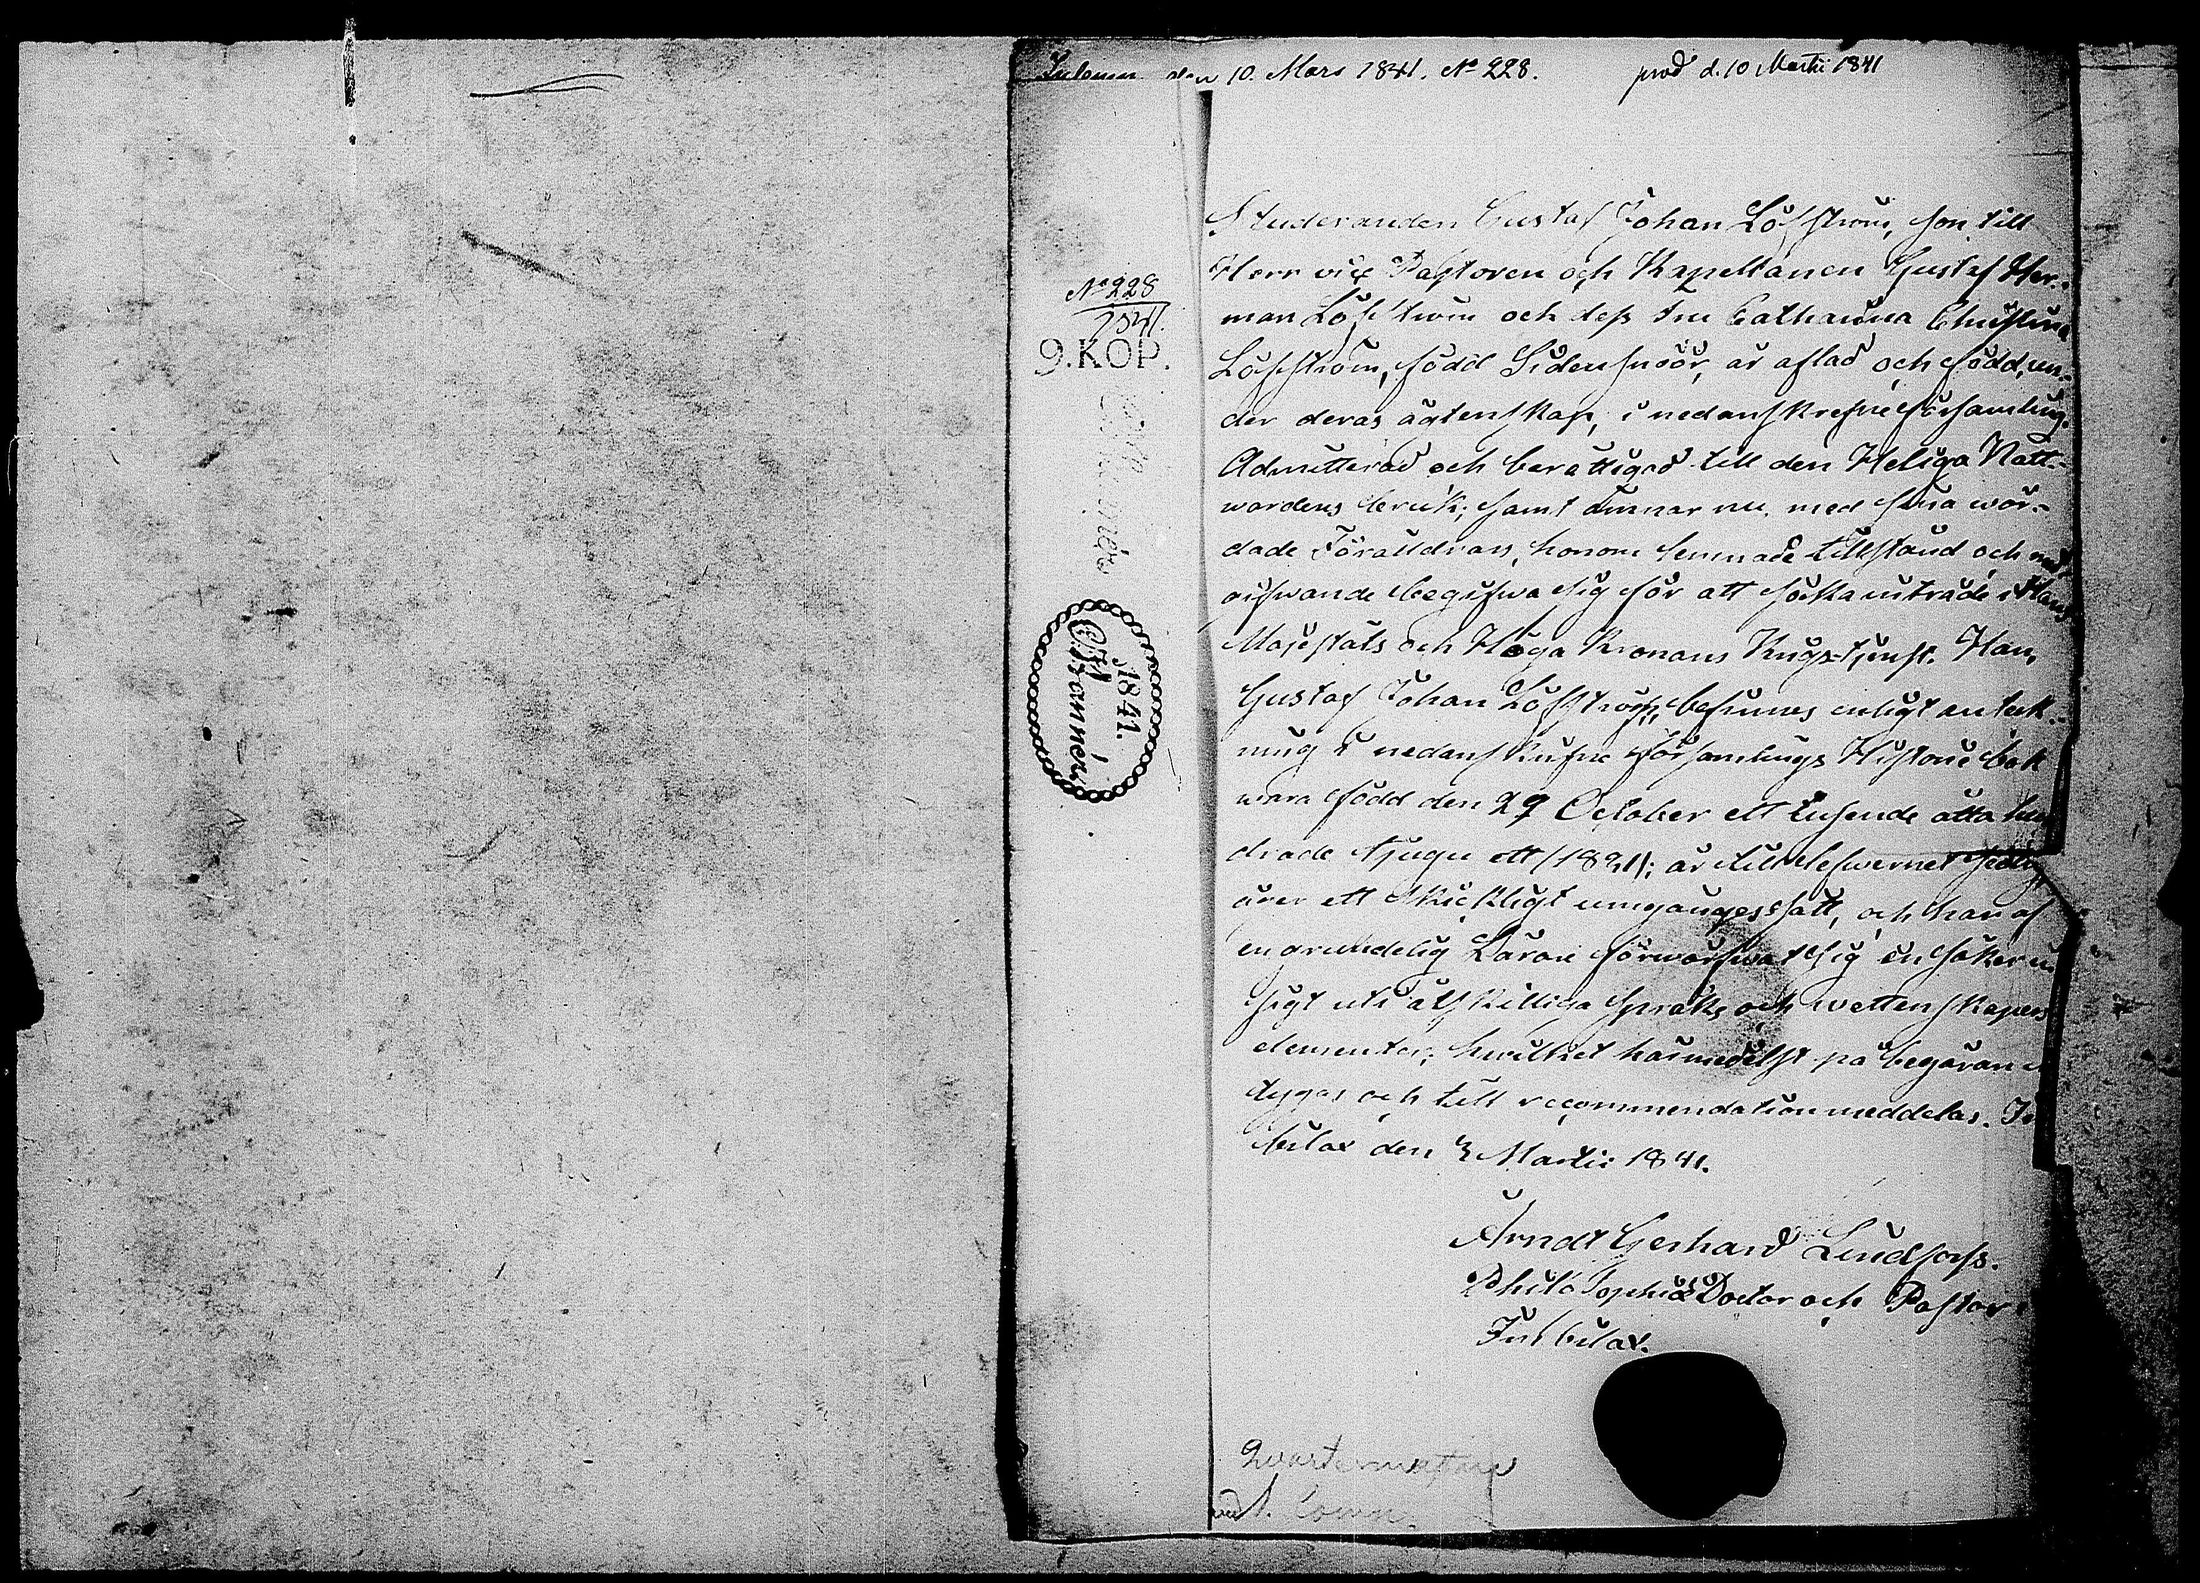 Inkommen den 10 Mars 1841. No 228.
prod d. 10 Martii 1841
No 228
1841.
9. KOP.
1841.
Studeranden Gustaf Johan Löfström, son till
Herr vice Pastoren och Kapellanen Gustaf Her-
man Löfström och dess Fru Catharina Christina
Löfström, född Sidensnöör, är aflad och född, un-
der deras ägtenskap, i nedanskrefne församling.
Admitterad och berättigad till den Heliga Natt-
wardens bruk; samt ämnar nu, med sina wör-
dade Föräldrars, honom lemnade tillstånd och med
gifwande begifwa sig för att söka inträde i Hans
Majestäts och Höga Kronans Krigstjenst. Han,
Gustaf Johan Löfström, befinnes enligt anteck-
ning i nedanskrifne församlings Historie bok
wara född den 29 October ett tusende åtta hun
drade tjugu ett (1821); är till lefwernet sedlig
äger ett skickligt umgängessätt, och har af
en grundelig Lärare förwärfwat sig en säker in
sigt uti åtskilliga språks och wettenskapers
elementer; hwilket härmedelst på begäran
tygas och till recommendation meddelas. Im
bilax den 3 Martii 1841.
Arndt Gerhard Lindforss.
Philosophiæ Doctor och Pastor i
Imbilax.
Quartermästare